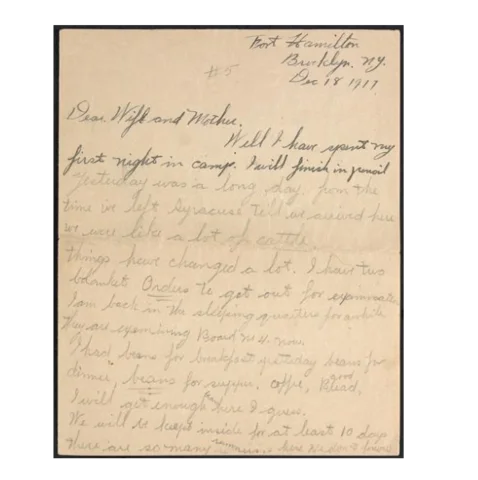 Fort Hamilton
Brooklyn. N.Y.
#5
Dec 18 1917
Dear Wife and Mother.
Well I have spent my
first night in camp. I will finish in pencil
Yesterday was a long day. from the
time we left Syracuse till we arrived here
we were like a lot of cattle.
things have changed a lot. I have two
blanket Orders to get out for examination
I am back in the sleeping quarters for awhile
they are examining Board no 4. now.
I had beans for breakfast yesterday beans for
dinner, beans for supper. coffee, and Bread.
I will get enough here I guess.
We will be kept inside for at least 10 days
there are so many here We don't